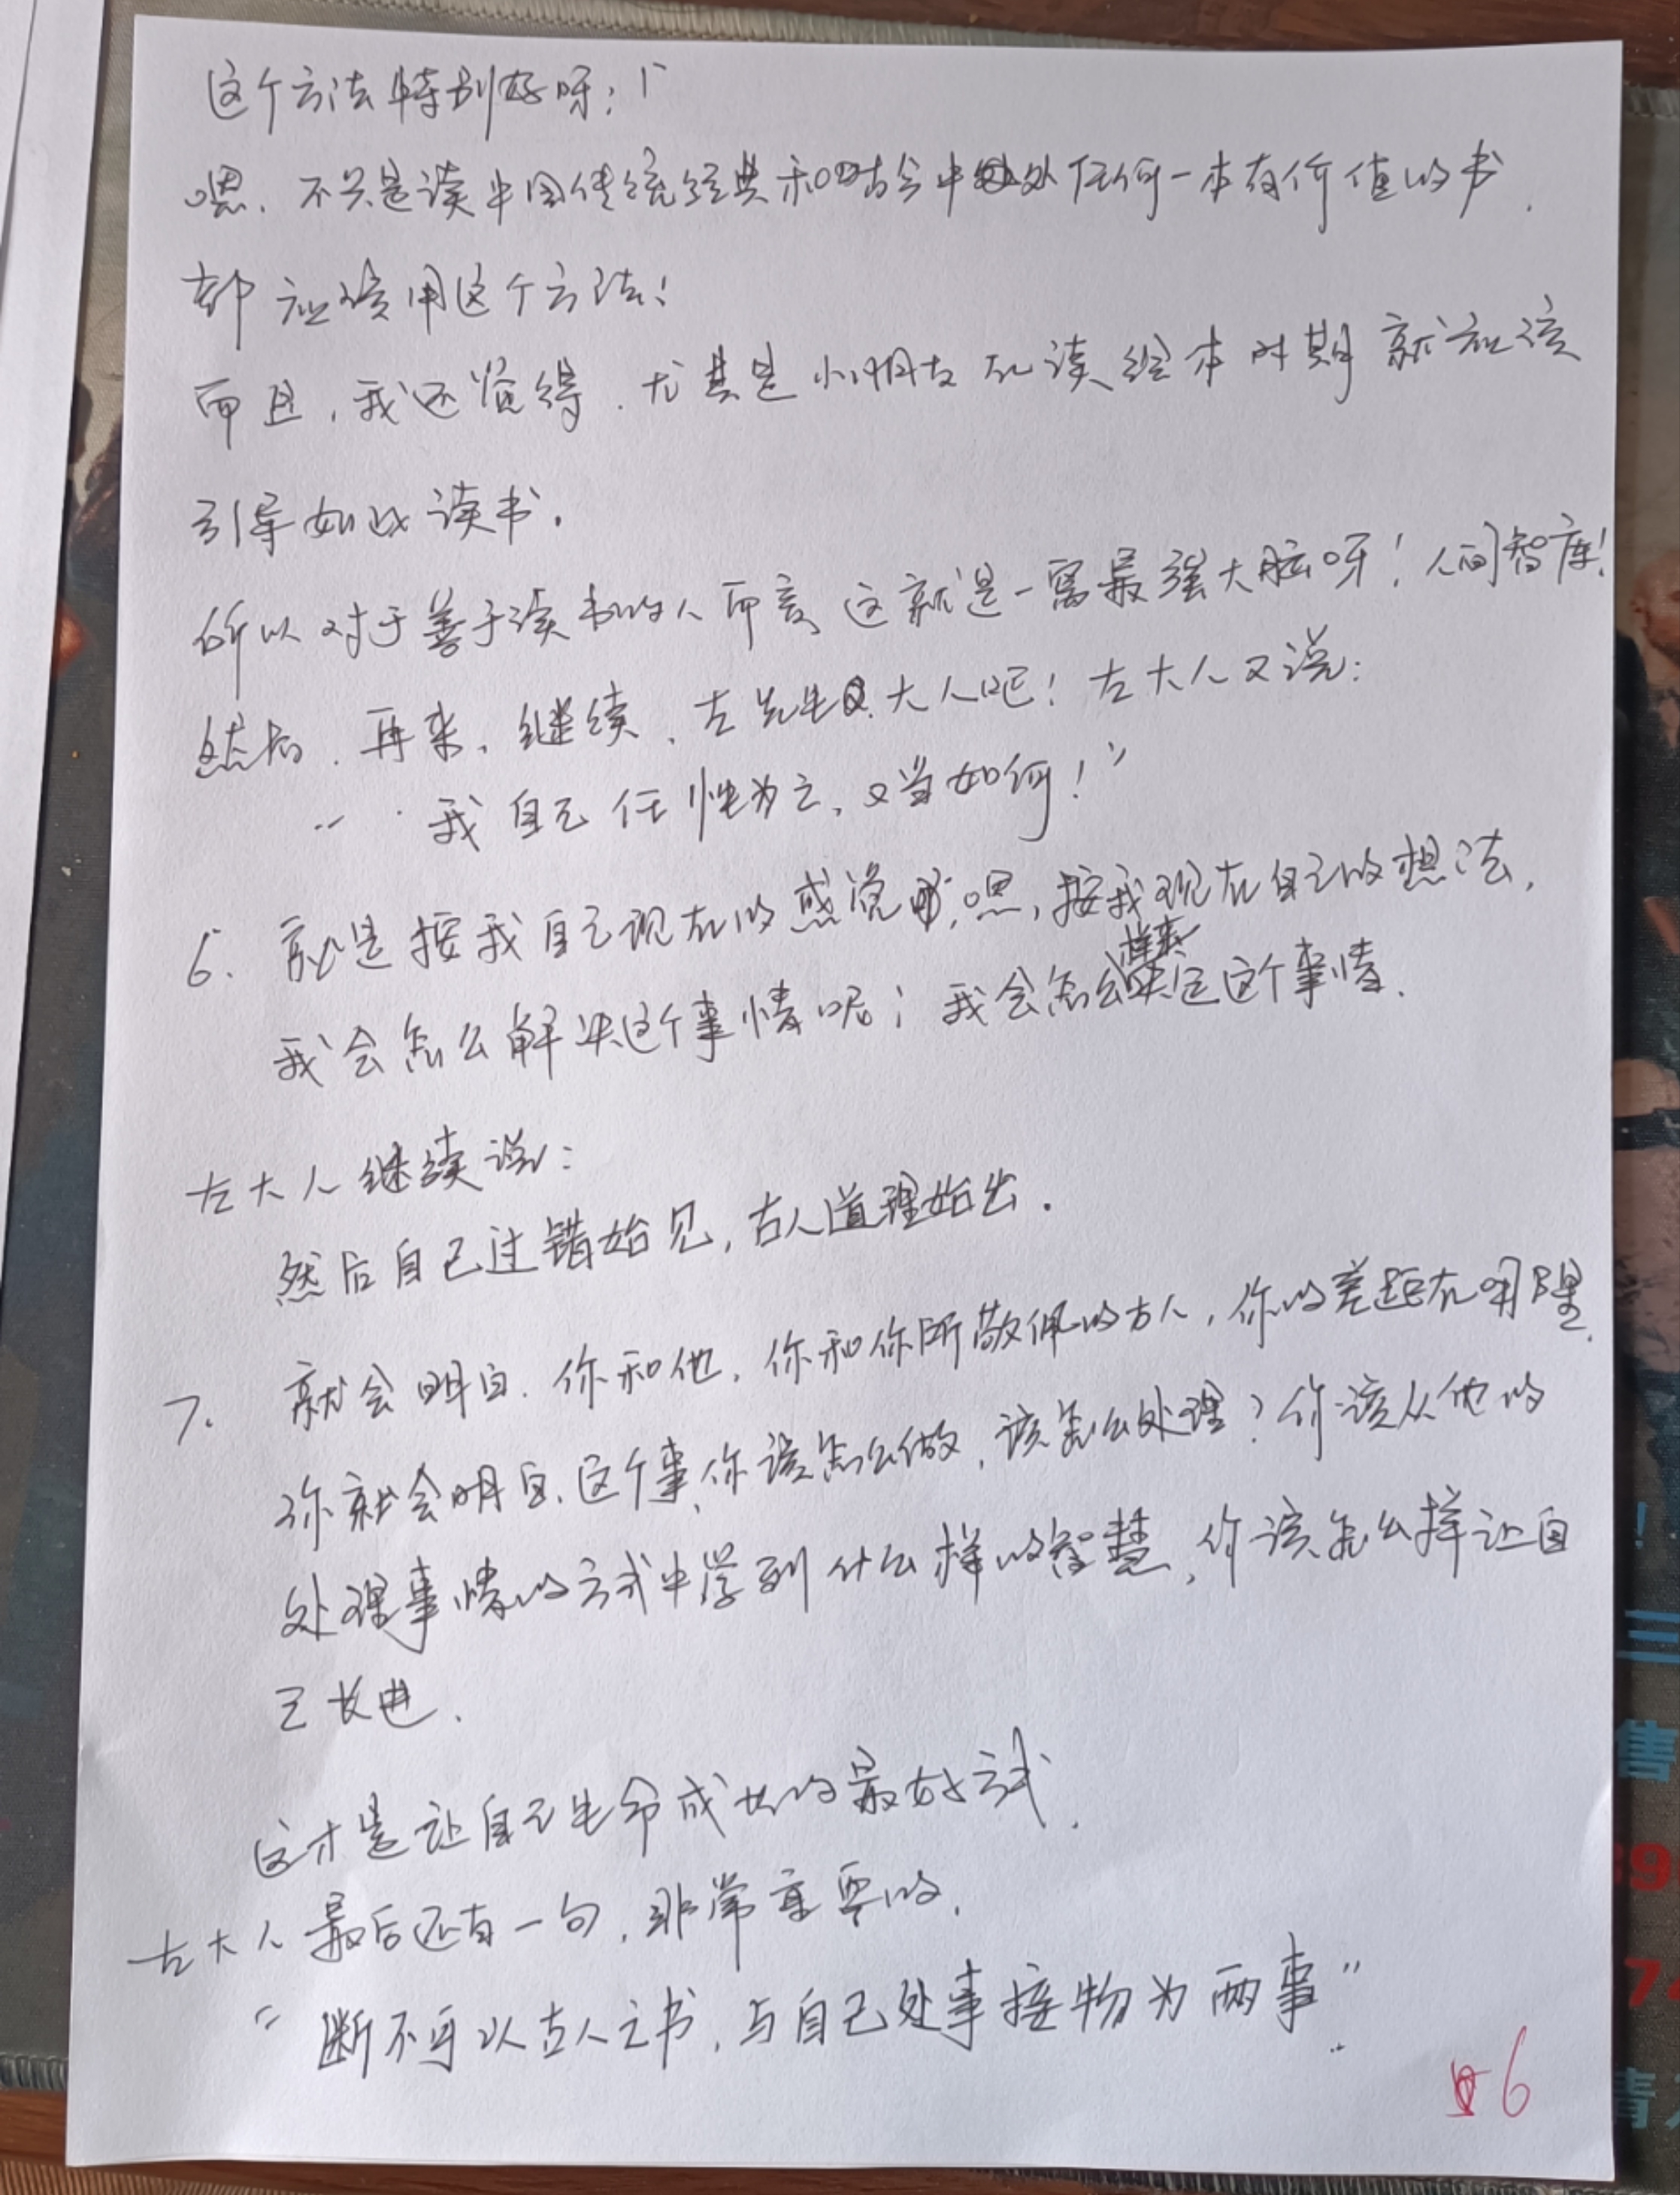 这个方法特别好呀！
嗯，不只是读中国传统经典和古今中外任何一本有价值的书，
都应该用这个方法！
而且，我还觉得，尤其是小朋友在读绘本时期就应该
引导如此读书。
所以对于善于读书的人而言，这就是一窝最强大脑呀！人间智库！
然后，再来，继续，左先生 大人吧！左大人又说：
“我自己任性为之，又当如何！”
6. 就是按我自己现在的感觉 嗯，按我现在自己的想法，
我会怎么解决这个事情呢；我会怎么样来决定这个事情。
左大人继续说：
然后自己过错始见，古人道理始出。
7. 就会明白，你和他，你和你所敬佩的古人，你的差距在哪里，
你就会明白，这个事，你该怎么做，该怎么处理？你该从他的
处理事情的方式中学到什么样的智慧，你该怎么样让自
己长进。
这才是让自己生命成长的最好方式。
左大人最后还有一句，非常重要的，
“断不可以古人之书，与自己处事接物为两事”
6
！
三
售
39
74
青